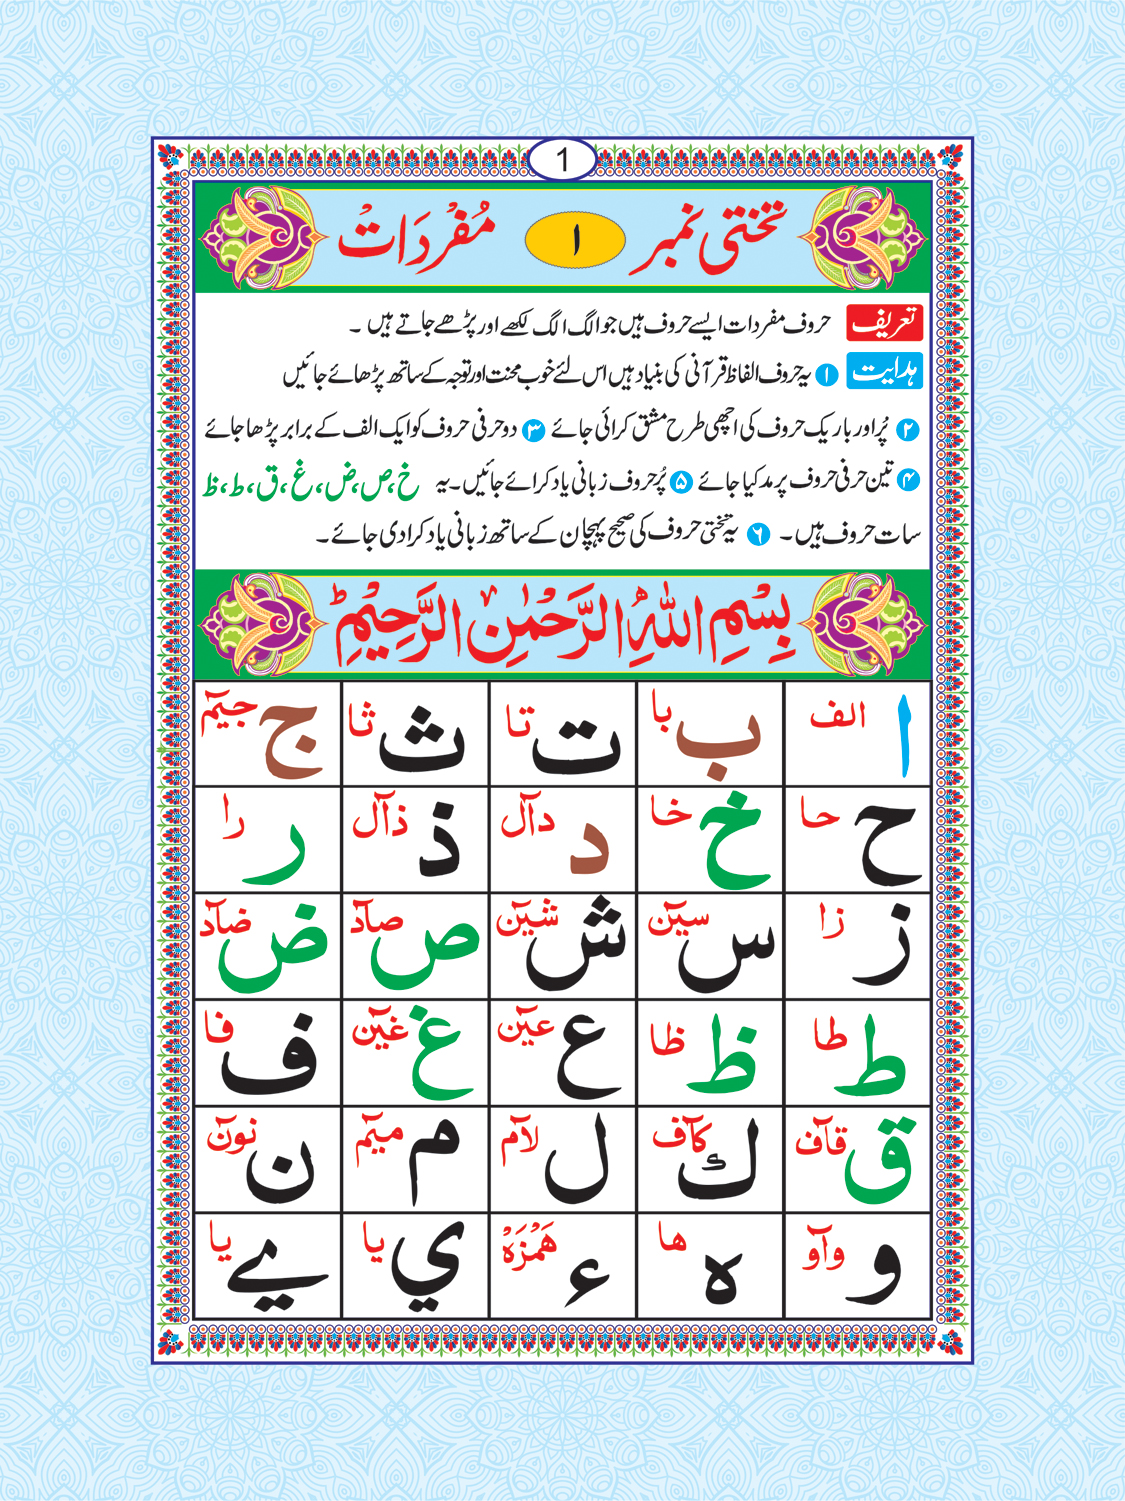 1
تختی نمبر ۱ مُفْرَدَاتْ
تعریف حروف مفردات ایسے حروف ہیں جو الگ الگ لکھے اور پڑھے جاتے ہیں ۔
ہدایت ۱ یہ حروف الفاظ قرآنی کی بنیاد ہیں اس لئے خوب محنت اور توجہ کے ساتھ پڑھائے جائیں
۲ پُر اور باریک حروف کی اچھی طرح مشق کرائی جائے ۳ دو حرفی حروف کو ایک الف کے برابر پڑھا جائے
۴ تین حرفی حروف پر مد کیا جائے ۵ پُر حروف زبانی یاد کرائے جائیں ۔ یہ خ، ص، ض، غ، ق، ط، ظ
سات حروف ہیں ۔ ۶ یہ تختی حروف کی صحیح پہچان کے ساتھ زبانی یاد کرا دی جائے ۔
بِسْمِ اللهِ الرَّحْمٰنِ الرَّحِيْمِ ط
ا الف ب با ت تا ث ثا ج جيٓم
ح حا خ خا د دآل ذ ذآل ر را
ز زا س سيٓن ش شيٓن ص صآد ض ضآد
ط طا ظ ظا ع عيٓن غ غيٓن ف فا
ق قآف ك كآف ل لآم م ميٓم ن نوٓن
و وآو ه ها ء هَمْزَهْ ي يا ے يا